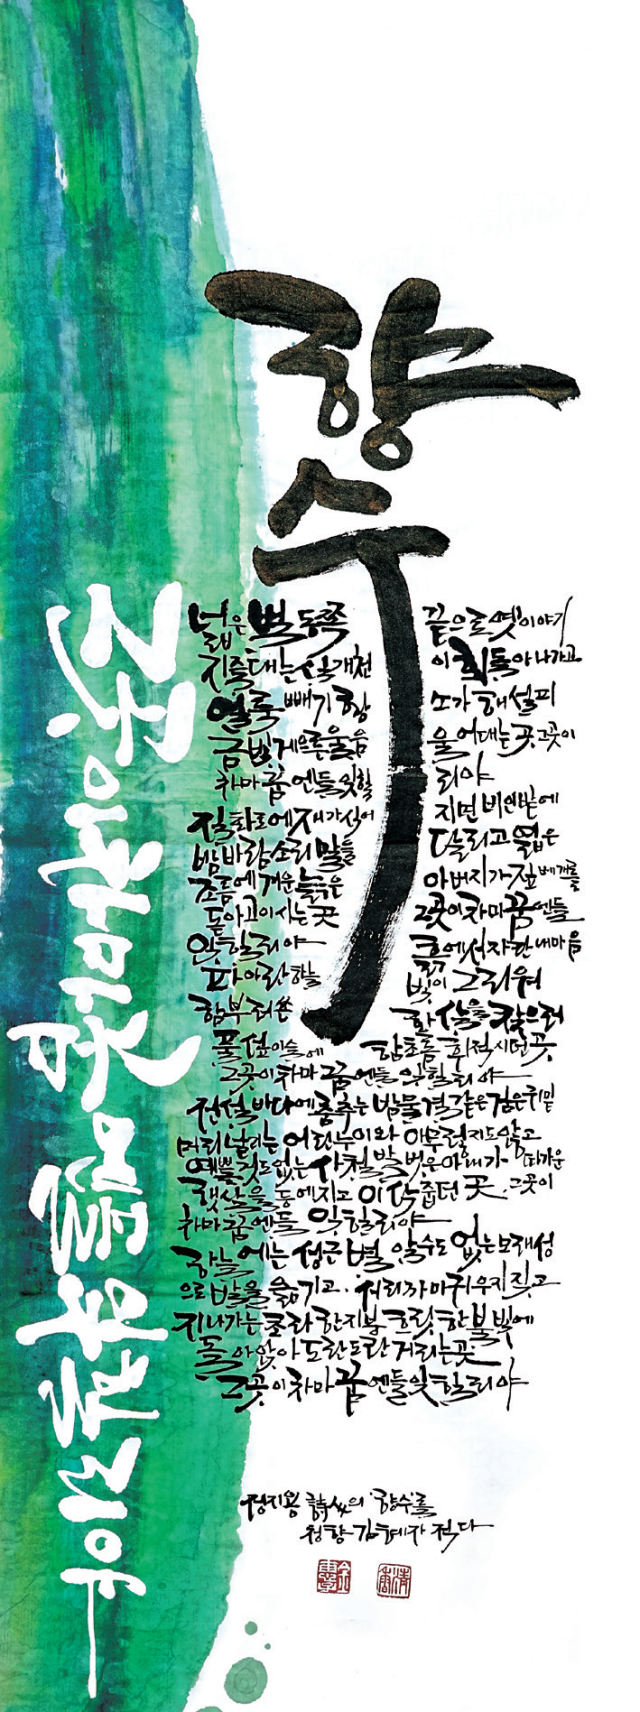 향수
그곳이차마꿈엔들잊힐리야
넓은 벌 동쪽 끝으로 옛이야기
지줄대는 실개천이 휘돌아나가고
얼룩빼기 황소가 해설피
금빛게으른울음 울어대는곳 그곳이
차마 꿈엔들잊힐리야
질화로에 재가식어지면 비인밭에
밤바람소리 말을 달리고 엷은
조름에겨운 늙은 아버지가 짚베개를
돋아고이시는 곳 그곳이 차마 꿈엔들
잊힐리야 흙에서자란 내마음
파아란 하늘빛이 그리워
함부러쏜 활살을 찾으러
풀섶이슬에 함초롬 휘적시던곳
그곳이 차마 꿈엔들 잊힐리야
전설바다에 춤추는 밤물결같은 검은귀밑
머리날리는 어린누이와 아무렇지도않고
예쁠것도없는 사철발벗은아내가 따가운
햇살을 등에지고 이삭줍던 곳 그곳이
차마 꿈엔들 잊힐리야
하늘에는 성근별 알수도 없는모래성
으로 발을 옮기고 서리까마귀우지짖고
지나가는초라한지붕 흐릿한불빛에
돌아앉아도란도란거리는곳
그곳이차마꿈엔들잊힐리야
정지용 詩人의 향수를
청향 김혜자 적다